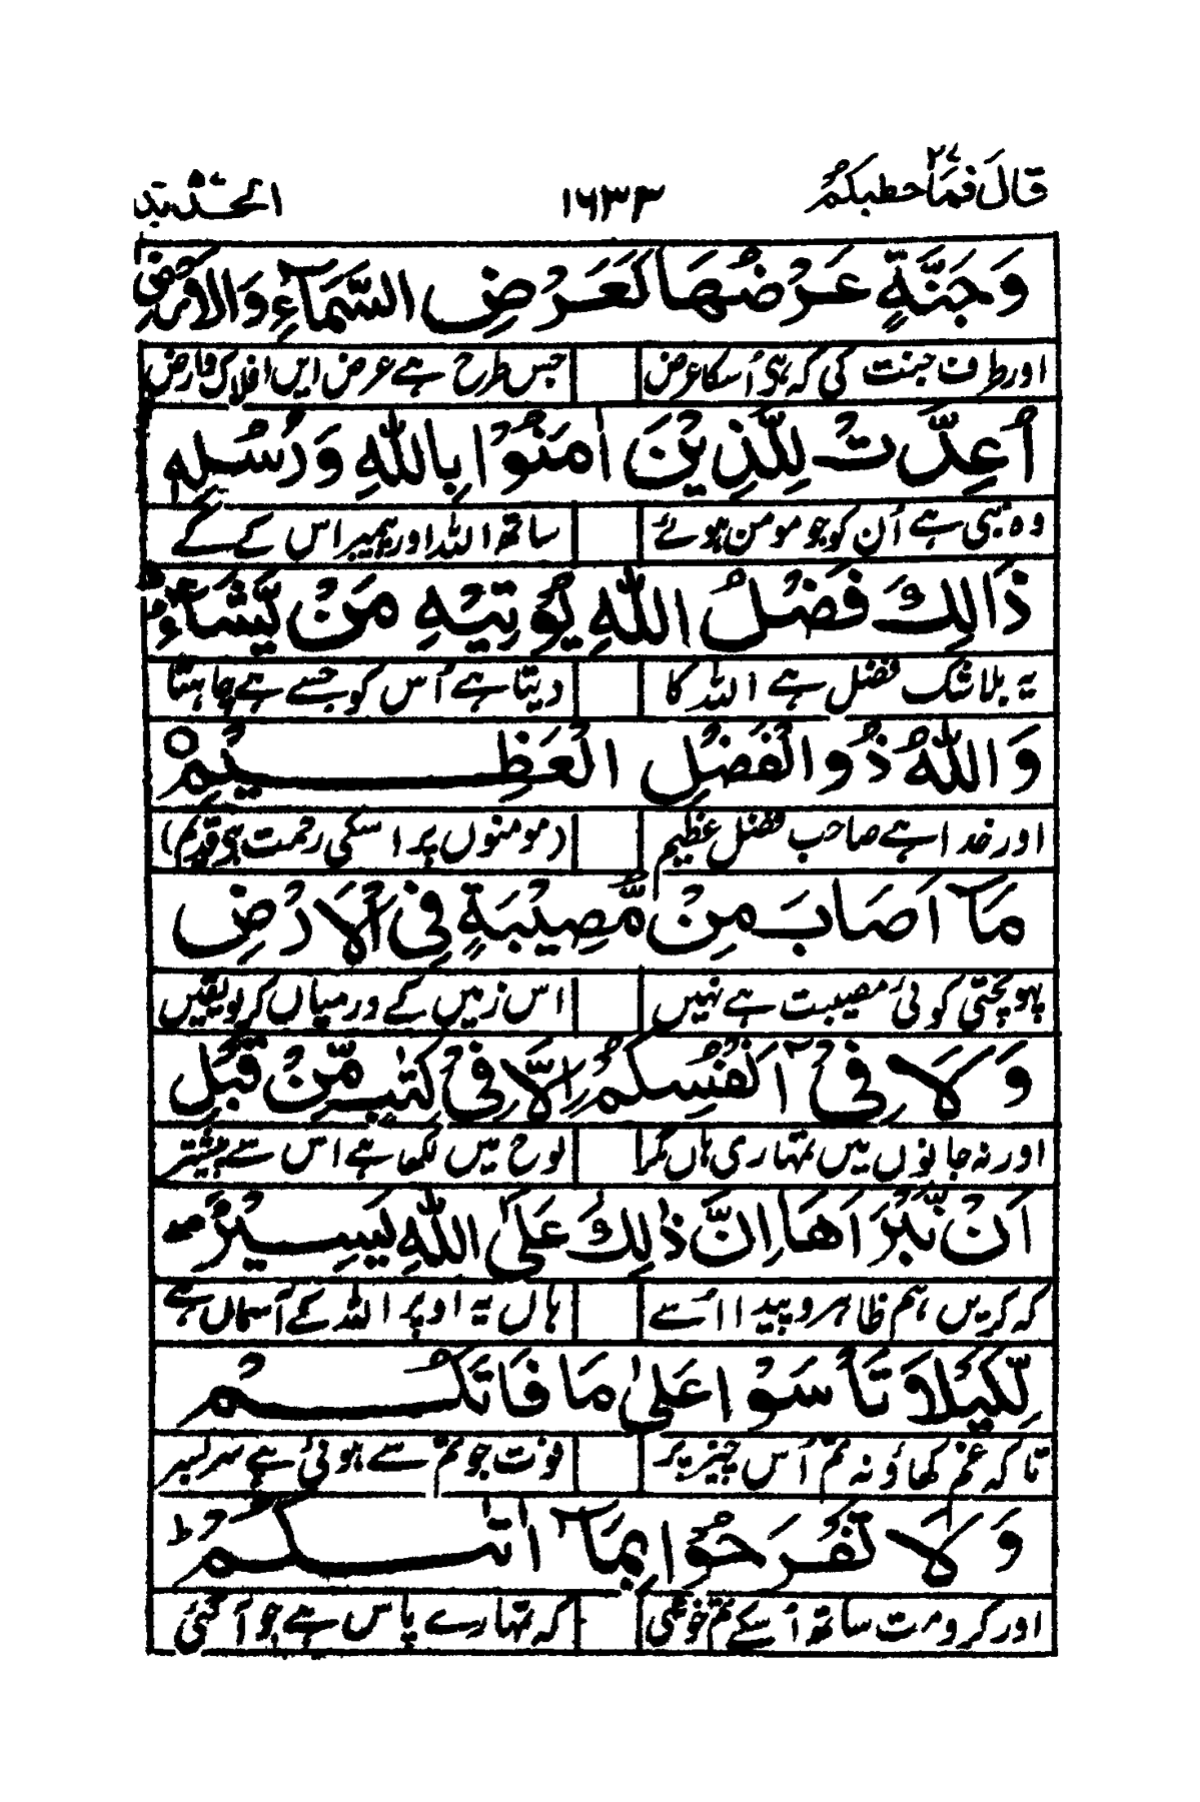 قَالَ فَمَا خَطبكمْ ٢٧ ١٦٣٣ الحَدِيد ٥٧
وَجَنَّةٍ عَرْضُهَا كَعَرْضِ السَّمَآءِ وَالْاَرْضِ
اور طرف جنت کی کہ ہی اُسکا عرض جس طرح ہے عرض ایں افلاک و ارض
اُعِدَّتْ لِلَّذِيْنَ اٰمَنُوْا بِاللّٰهِ وَرُسُلِهٖ
وہ بنی ہے اُن کو جو مومن ہوئے ساتھ اللہ اور پیمبر اس کے کے
ذَالِكَ فَضْلُ اللّٰهِ يُؤْتِيْهِ مَنْ يَّشَآءُ
یہ بلا شک فضل ہے اللہ کا دیتا ہے اُس کو جسے ہے چاہتا
وَاللّٰهُ ذُو الْفَضْلِ الْعَظِيْمِ
اور خدا ہے صاحب فضل عظیم (مومنوں پر اسکی رحمت ہی قدیم)
مَآ اَصَابَ مِنْ مُّصِيْبَةٍ فِى الْاَرْضِ
پہونچتی کوئی مصیبت ہے نہیں اس زمیں کے درمیاں کر لو یقیں
وَلَا فِىْٓ اَنْفُسِكُمْ اِلَّا فِىْ كِتٰبٍ مِّنْ قَبْلِ
اور نہ جانوں میں تمہاری ہاں مگر لوح میں لکھا ہے اس سے پیشتر
اَنْ نَّبْرَاَهَا اِنَّ ذٰلِكَ عَلَى اللّٰهِ يَسِيْرٌ
کہ کریں ہم ظاہر و پیدا اُسے ہاں یہ اوپر اللہ کے آسماں ہے
لِّكَيْلَا تَاْسَوْا عَلٰى مَا فَاتَكُمْ
تاکہ غم کھاؤ نہ تم اُس چیز پر فوت جو تم سے ہوئی ہے سر بسر
وَلَا تَفْرَحُوْا بِمَآ اٰتٰىكُمْ ط
اور کرو مت ساتھ اُسکے تم خوشی کہ تمہارے پاس ہے جو آ گئی